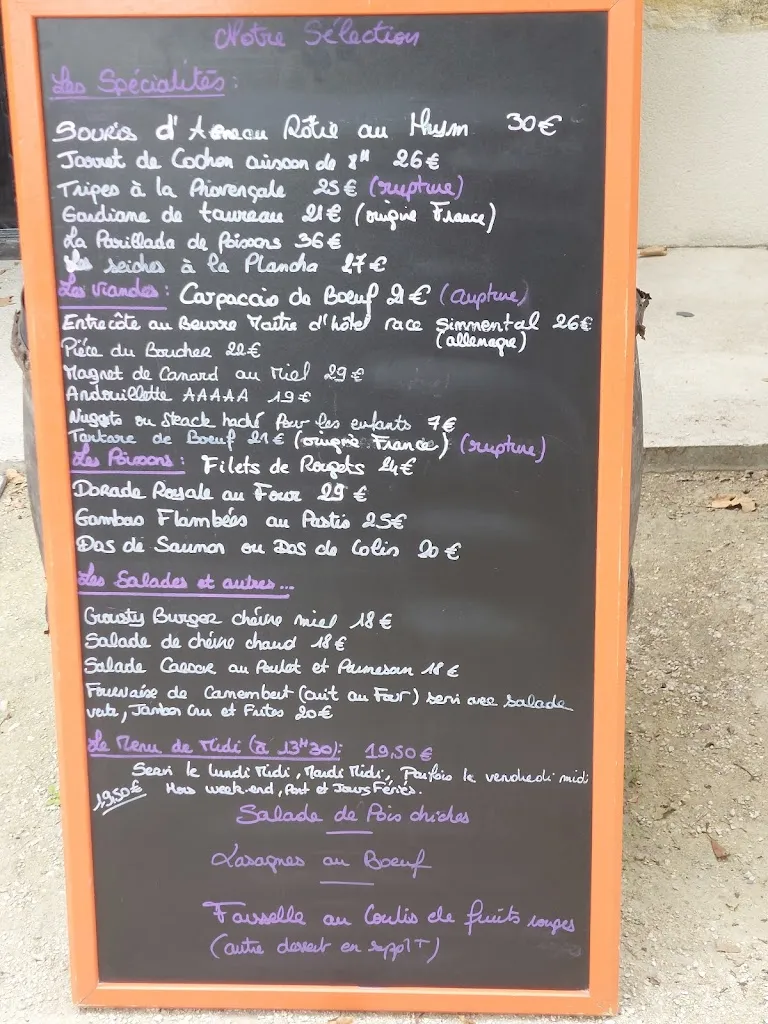 Notre Sélection
Les Spécialités :
Souris d'Agneau Rôtie au Thym 30€
Jarret de Cochon cuisson de 8H 26€
Tripes à la Provençale 25€ (rupture)
Gardiane de taureau 21€ (origine France)
La Parillada de Poissons 36€
Les seiches à la Plancha 27€
Les Viandes : Carpaccio de Boeuf 21€ (rupture)
Entrecôte au Beurre Maître d'hôtel race simmental 26€
(allemagne)
Pièce du Boucher 22€
Magret de Canard au Miel 29€
Andouillette AAAAA 19€
Nuggets ou Steack haché Pour les enfants 7€
Tartare de Boeuf 21€ (origine France) (rupture)
Les Poissons : Filets de Rougets 24€
Dorade Royale au Four 29€
Gambas Flambées au Pastis 25€
Dos de Saumon ou Dos de Colin 20€
Les Salades et autres...
Crousty Burger chèvre miel 18€
Salade de chèvre chaud 18€
Salade Caesar au Poulet et Parmesan 18€
Fournaise de Camembert (cuit au Four) servi avec salade
verte, Jambon Cru et Frites 20€
Le Menu de Midi (à 13H30) : 19,50€
Servi le lundi Midi, Mardi Midi, Parfois le vendredi midi
19,50€ Hors week-end, Pont et Jours Fériés.
Salade de Pois chiches
Lasagnes au Boeuf
Faisselle au Coulis de fruits rouges
(autre dessert en supplT)